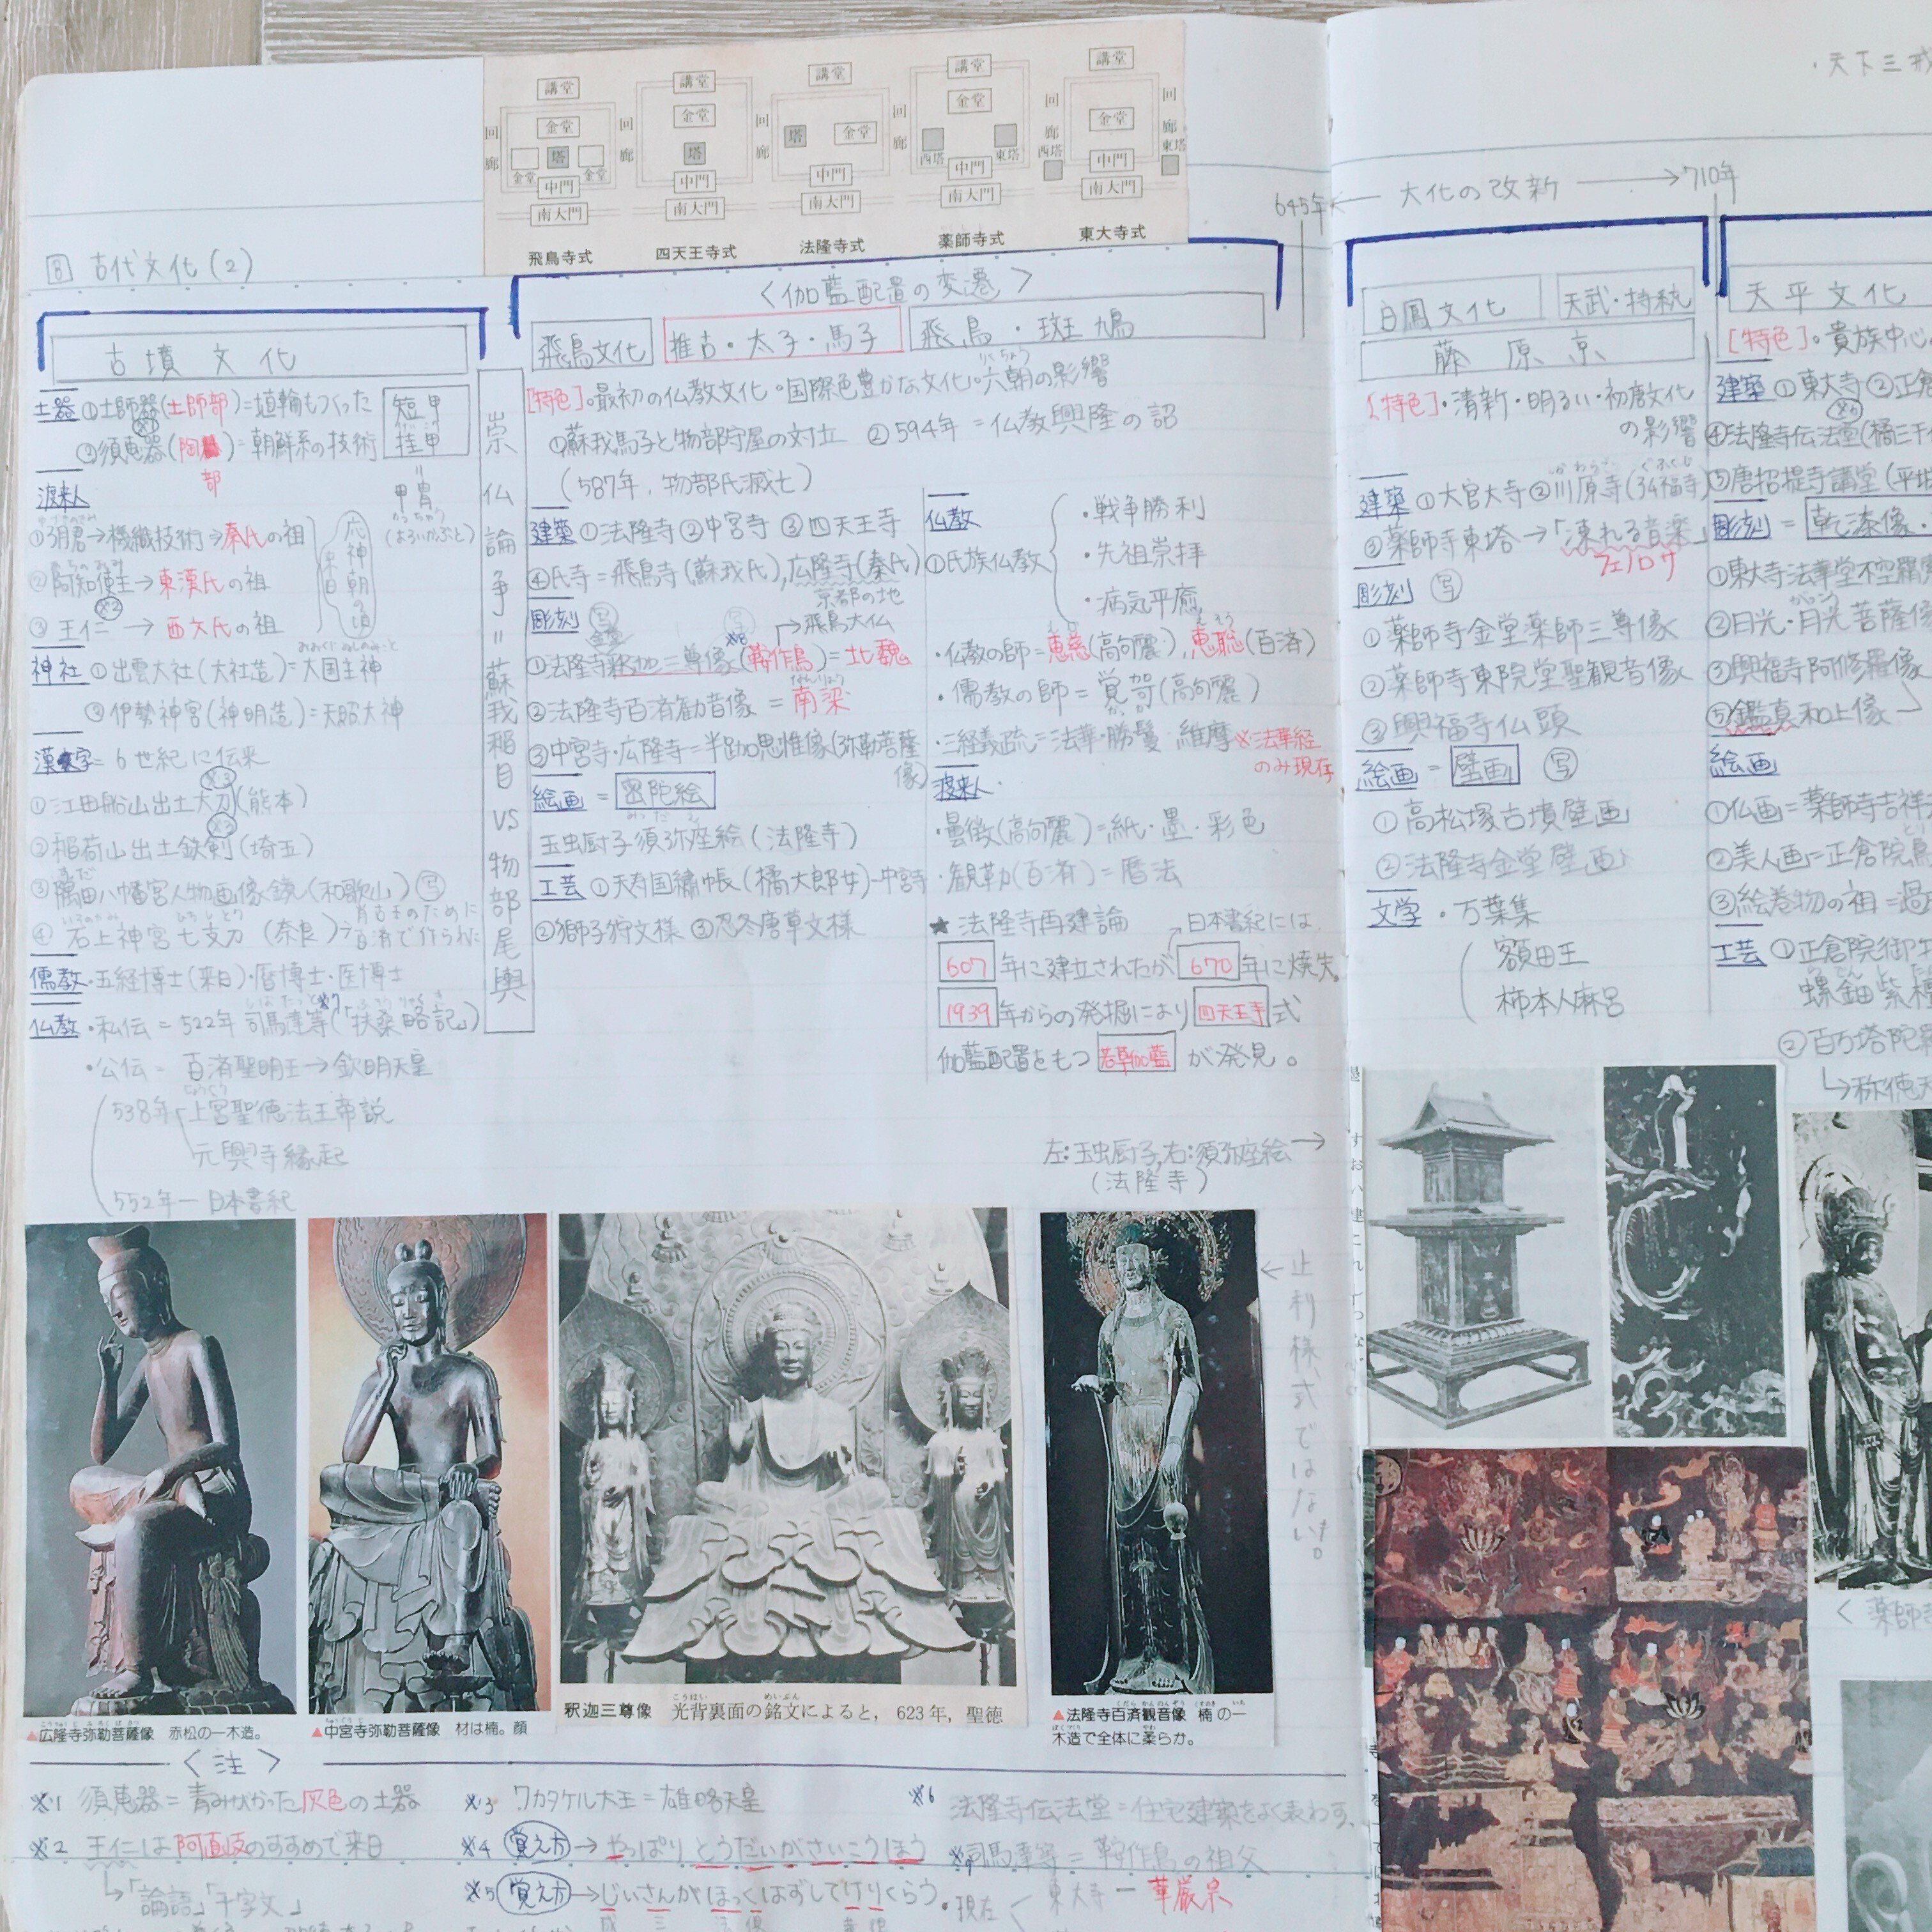 講堂 講堂 講堂 講堂 講堂
回廊 金堂 回廊 金堂 回廊 塔 金堂 回廊 金堂 回廊 金堂 回廊
金堂 塔 金堂 塔 西塔 東塔 西塔 東塔
中門 中門 中門 中門 中門
南大門 南大門 南大門 南大門 南大門
飛鳥寺式 四天王寺式 法隆寺式 薬師寺式 東大寺式
・天下三戒
645年 ← 大化の改新 → 710年
8 古代文化(2)
〈伽藍配置の変遷〉
古墳文化
土器 ①土師器(土師部)=埴輪もつくった
※1
②須恵器(陶部)=朝鮮系の技術
短甲
挂甲
=
甲冑
かっちゅう
(よろいかぶと)
渡来人
①弓月君→機織技術→秦氏の祖
②阿知使主→東漢氏の祖
※2
③王仁→西文氏の祖
応神朝の頃
来日
神社 ①出雲大社(大社造)=大国主神
おおくにぬしのみこと
②伊勢神宮(神明造)=天照大神
漢字=6世紀に伝来
※3
①江田船山出土大刀(熊本)
※3
②稲荷山出土鉄剣(埼玉)
③隅田八幡宮人物画像鏡(和歌山) 写
④石上神宮七支刀(奈良)→百済王のために百済で作られた
儒教・五経博士(来日)・暦博士・医博士
仏教・私伝=522年 司馬達等※7(「扶桑略記」)
・公伝=百済聖明王→欽明天皇
538年 上宮聖徳法王帝説
元興寺縁起
552年ー日本書紀
崇仏論争=蘇我稲目VS物部尾輿
飛鳥文化 推古・太子・馬子 飛鳥・斑鳩
りくちょう
[特色]・最初の仏教文化。国際色豊かな文化。六朝の影響
①蘇我馬子と物部守屋の対立 ②594年=仏教興隆の詔
(587年、物部氏滅亡)
建築 ①法隆寺 ②中宮寺 ③四天王寺
④氏寺=飛鳥寺(蘇我氏),広隆寺(秦氏)
京都の地
彫刻 写 写 →飛鳥大仏
金堂 ※8
①法隆寺釈迦三尊像(鞍作鳥)=北魏
②法隆寺百済観音像=南梁
③中宮寺・広隆寺=半跏思惟像(弥勒菩薩像)
絵画=密陀絵
みつだえ
玉虫厨子須弥座絵(法隆寺)
工芸 ①天寿国繍帳(橘大郎女)-中宮寺
②獅子狩文様 ③忍冬唐草文様
仏教
①氏族仏教
・戦争勝利
・先祖崇拝
・病気平癒
・仏教の師=恵慈(高句麗),恵聡(百済)
・儒教の師=覚哿(高句麗)
・三経義疏=法華・勝鬘 維摩※法華経のみ現存
渡来人
・曇徴(高句麗)=紙・墨・彩色
・観勒(百済)=暦法
★法隆寺再建論 日本書紀には、
607年に建立されたが670年に焼失。
1939年からの発掘により四天王寺式
伽藍配置をもつ若草伽藍が発見。
左:玉虫厨子,右:須弥座絵→
(法隆寺)
←止利様式ではない。
白鳳文化 天武・持統
藤原京
[特色]・清新・明るい・初唐文化の影響
かわらでら ぐふくじ
建築 ①大官大寺 ②川原寺(弘福寺)
③薬師寺東塔→「凍れる音楽」
フェノロサ
彫刻 写
①薬師寺金堂薬師三尊像
②薬師寺東院堂聖観音像
③興福寺仏頭
絵画=壁画 写
①高松塚古墳壁画
②法隆寺金堂壁画
文学・万葉集
額田王
柿本人麻呂
天平文化
[特色]。貴族中心
建築 ①東大寺 ②正倉
※6
④法隆寺伝法堂(橘三千
⑤唐招提寺講堂(平城
彫刻=乾漆像・
①東大寺法華堂不空羂
②日光・月光菩薩像
③興福寺阿修羅像
⑤鑑真和上像
絵画
①仏画=薬師寺吉祥
②美人画=正倉院鳥
③絵巻物の祖=過
工芸 ①正倉院御
螺鈿紫檀
②百万塔陀羅
→称徳天
〈薬師寺
▲広隆寺弥勒菩薩像 赤松の一木造。
▲中宮寺弥勒菩薩像 材は楠。顔
釈迦三尊像 光背裏面の銘文によると, 623年, 聖徳
▲法隆寺百済観音像 楠の一
木造で全体に柔らか。
〈注〉
※1 須恵器=青みがかった灰色の土器
※2 王仁は阿直岐のすすめで来日
→「論語」「千字文」
※3 ワカタケル大王=雄略天皇
※4 覚え方→やっぱり とうだいがさいこうほう
※5 覚え方→じいさんが ほっくはずしてけりくらう
※6 法隆寺伝法堂=住宅建築をよく表わす。
※7 司馬達等=鞍作鳥の祖父
・現在 東大寺ー華厳宗